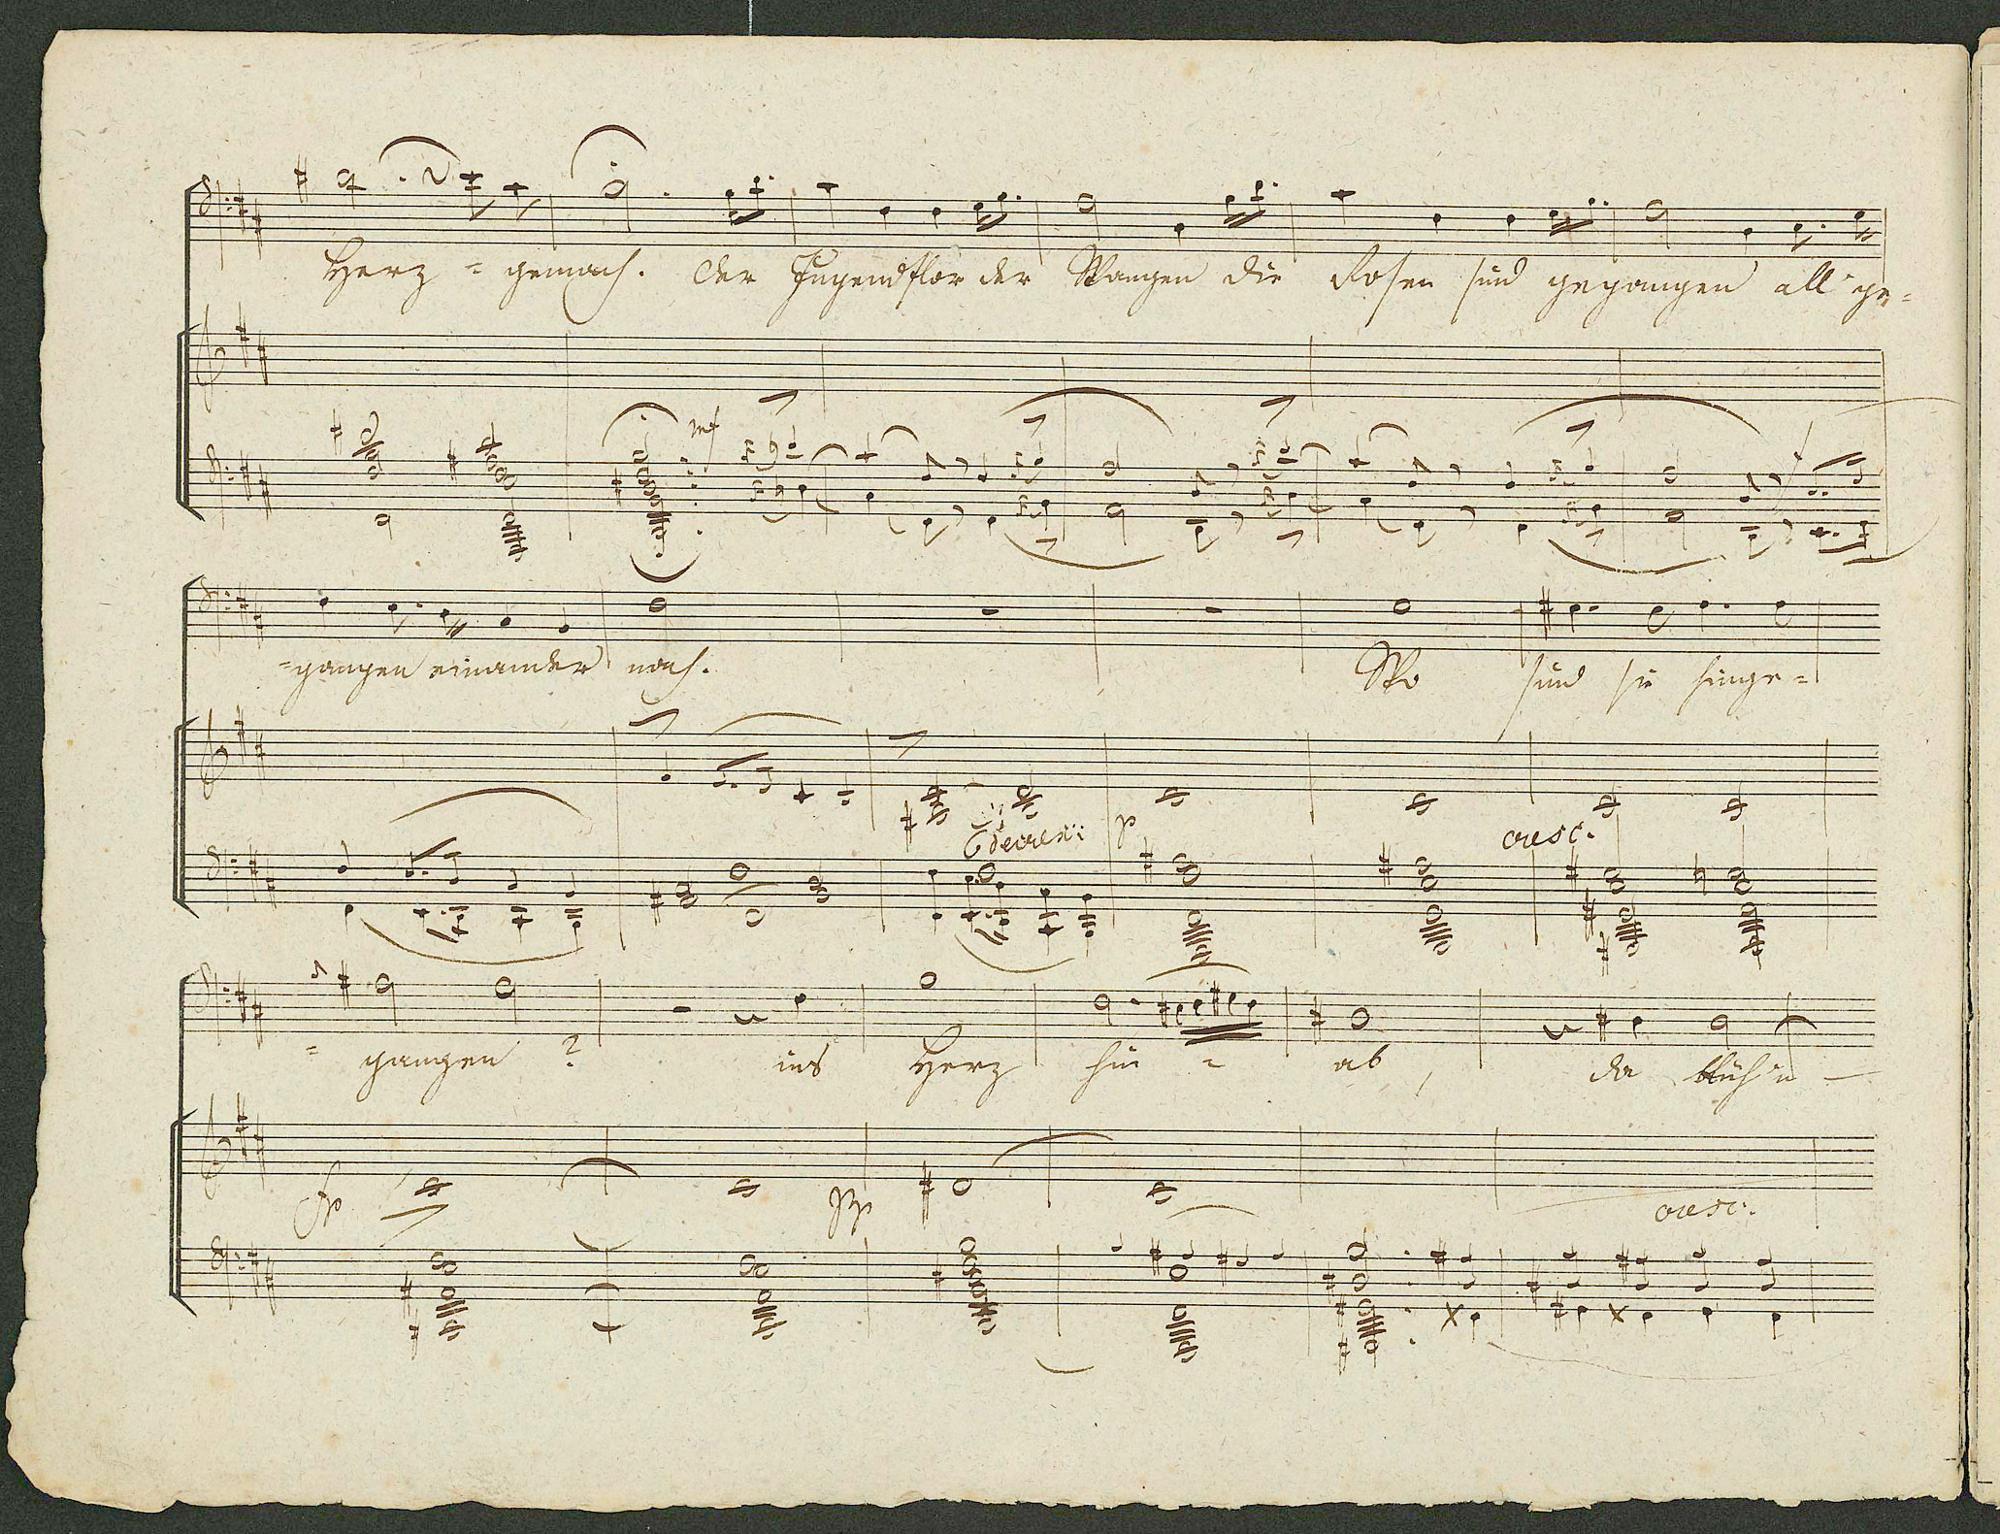 Herz = gemach. Der Jugendflor der Wangen die Rosen sind gegangen all' ge=
mf
=gangen einander nach. Wo sind sie hinge=
decresc: p cresc.
= gangen ? ins Herz hin = ab , da blüh'n
fp pp cresc.